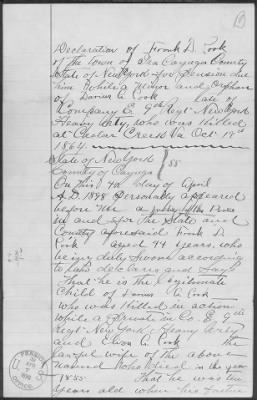 Declaration of Frank D. Cook
of the town of Ira Cayuga County
State of New York for Pension due
him while a Minor and orphan
of Darius G. Cook late of
Company E 9th Regt New York
Heavy Arty who was Killed
at Cedar Creek Va Oct 19th
1864.
State of New York
County of Cayuga } SS
On this 4th Day of April
A.D. 1898 Personally appeared
before me
in and for the State and
County aforesaid Frank D.
Cook aged 44 years, who
being duly sworn according
to Law declares and says
That he is the Legitimate
Child of Darius G. Cook
who was Killed in action
while a Private in Co. E 9th
Regt New York Heavy Arty
and Cook the
lawful wife of the above
named who died in the year
1855 That he was ten
years old when his father